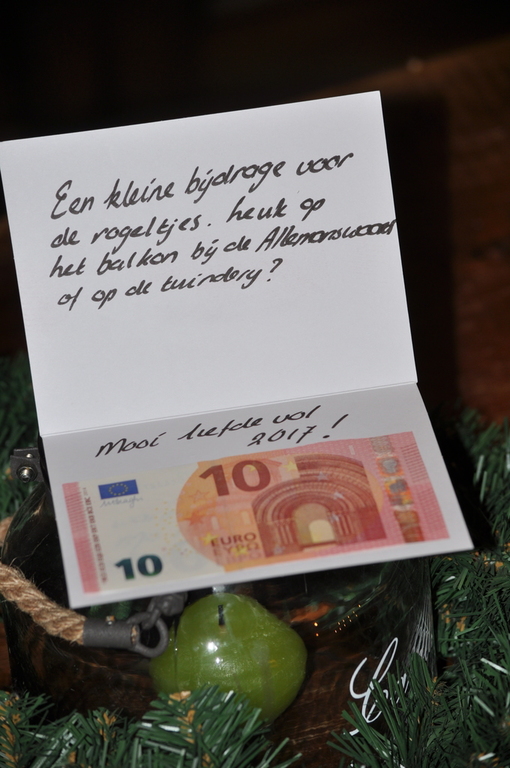 Een kleine bijdrage voor
de vogeltjes. Leuk op
het balkon bij de Allemanswaard
of op de tuindery?
Mooi liefde vol
2017!
10
EURO
ΕΥΡΩ
10